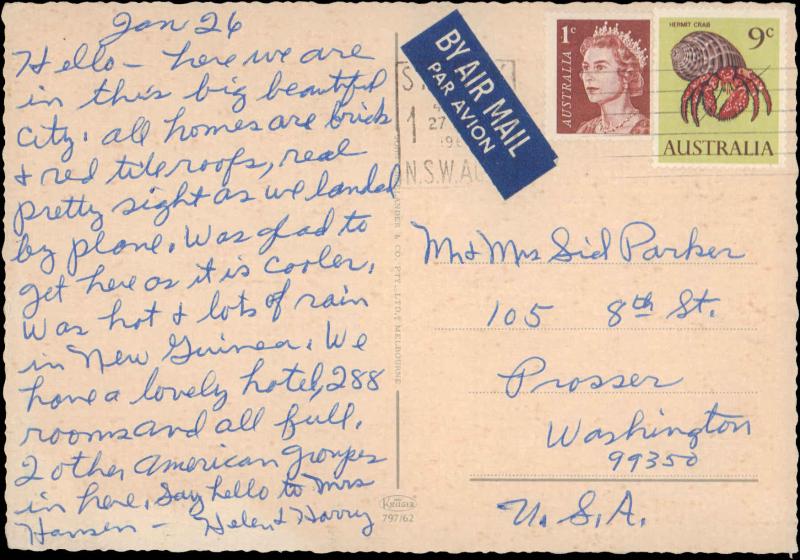 Jan 26
Hello - here we are
in this big beautiful
City. all homes are brick
& red tile roofs, real
pretty sight as we landed
by plane. Was glad to
get here as it is cooler.
Was hot & lots of rain
in New Guinea. We
have a lovely hotel, 288
rooms and all full.
2 other American groupes
in here. Say hello to Mrs
Hansen - Helen & Harry
BY AIR MAIL
PAR AVION
1c
AUSTRALIA
HERMIT CRAB
9c
AUSTRALIA
1
27
N.S.W. AU
& CO. PTY. LTD., MELBOURNE
Krüger
797/62
Mr & Mrs Sid Parker
105 8th St.
Prosser
Washington
99350
U.S.A.